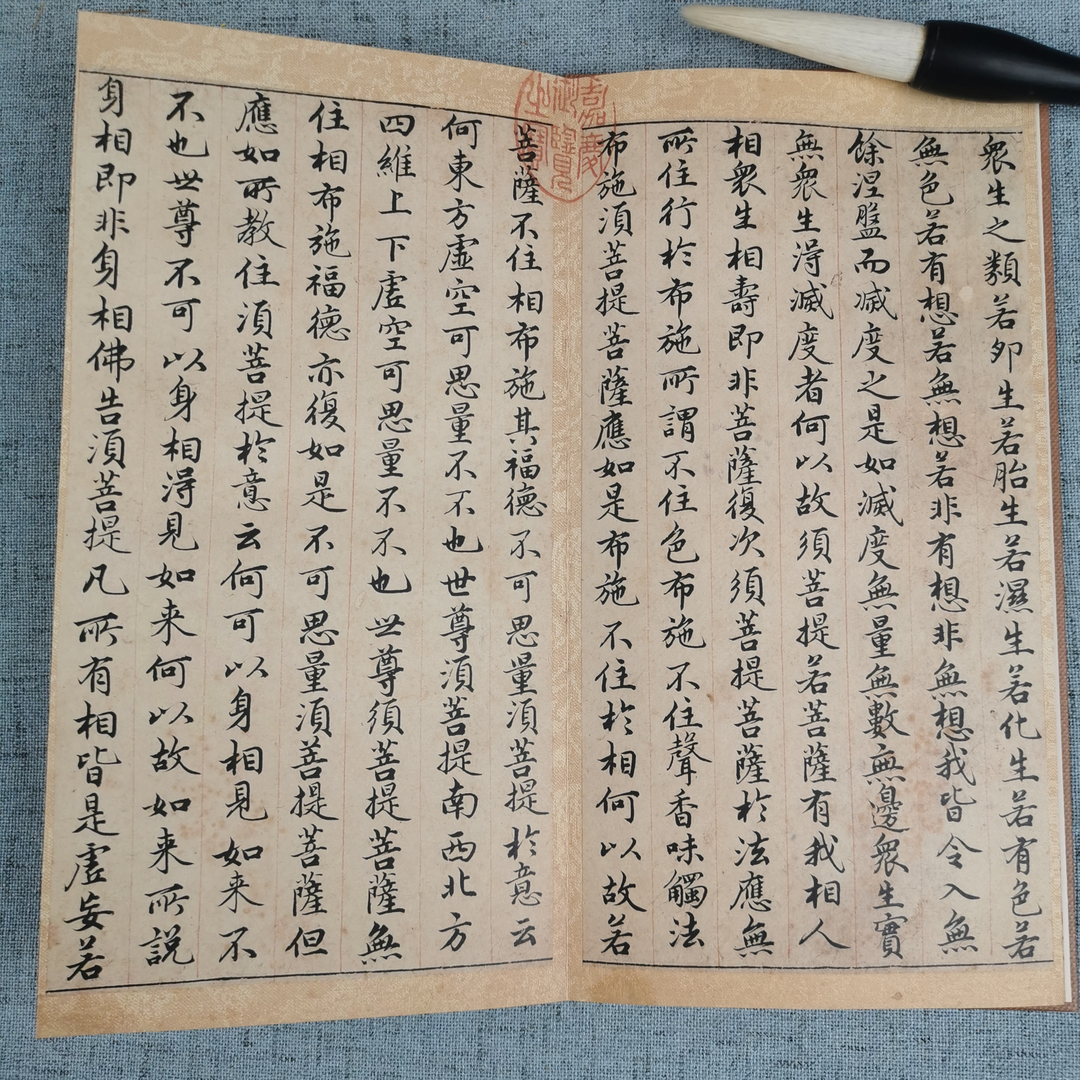 衆生之類若卵生若胎生若濕生若化生若有色若
無色若有想若無想若非有想非無想我皆令入無
餘涅盤而滅度之是如滅度無量無數無邊衆生實
無衆生得滅度者何以故須菩提若菩薩有我相人
相衆生相壽即非菩薩復次須菩提菩薩於法應無
所住行於布施所謂不住色布施不住聲香味觸法
布施須菩提菩薩應如是布施不住於相何以故若
菩薩不住相布施其福德不可思量須菩提於意云
何東方虛空可思量不不也世尊須菩提南西北方
四維上下虛空可思量不不也世尊須菩提菩薩無
住相布施福德亦復如是不可思量須菩提菩薩但
應如所教住須菩提於意云何可以身相見如来不
不也世尊不可以身相得見如来何以故如来所説
身相即非身相佛告須菩提凡所有相皆是虛妄若
嘉慶御覽之寶